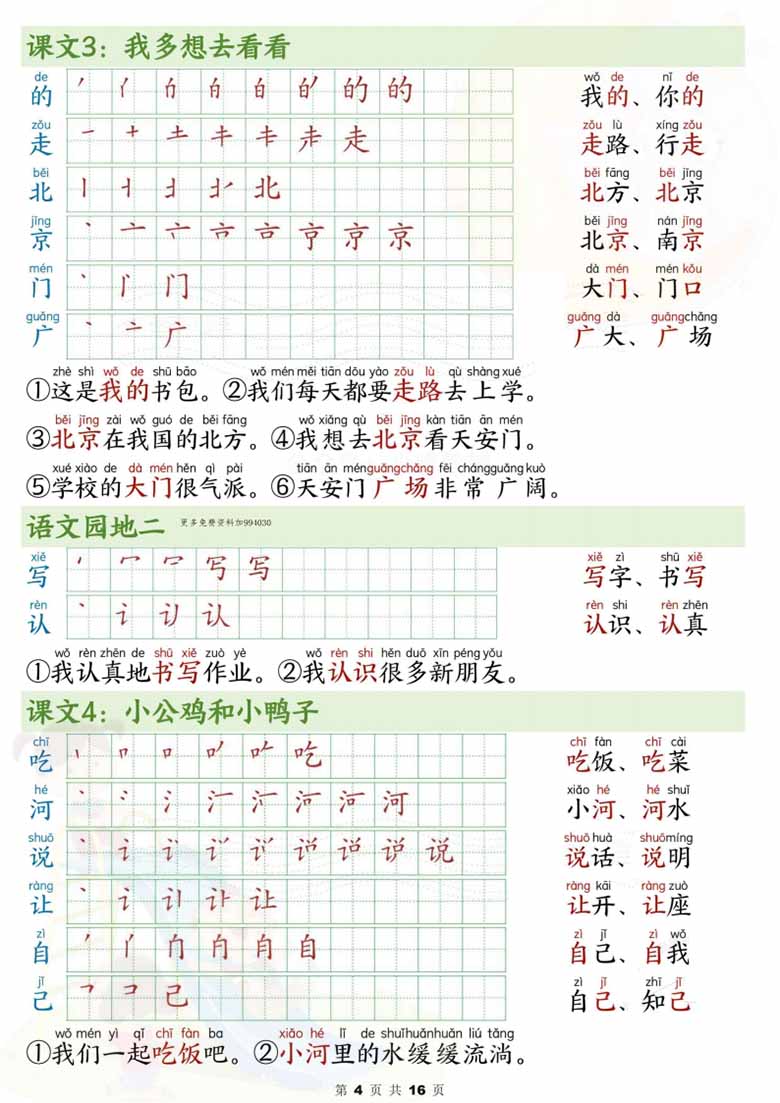 课文3：我多想去看看
de wǒ de nǐ de
的 我的、你的
zǒu zǒu lù xíng zǒu
走 走路、行走
běi běi fāng běi jīng
北 北方、北京
jīng běi jīng nán jīng
京 北京、南京
mén dà mén mén kǒu
门 大门、门口
guǎng guǎng dà guǎngchǎng
广 广大、广场
zhè shì wǒ de shū bāo wǒ men měi tiān dōu yào zǒu lù qù shàng xué
①这是我的书包。②我们每天都要走路去上学。
běi jīng zài wǒ guó de běi fāng wǒ xiǎng qù běi jīng kàn tiān ān mén
③北京在我国的北方。④我想去北京看天安门。
xué xiào de dà mén hěn qì pài tiān ān mén guǎngchǎng fēi cháng guǎng kuò
⑤学校的大门很气派。⑥天安门广场非常广阔。
语文园地二 更多免费资料加994030
xiě xiě zì shū xiě
写 写字、书写
rèn rèn shi rèn zhēn
认 认识、认真
wǒ rèn zhēn de shū xiě zuò yè wǒ rèn shi hěn duō xīn péng yǒu
①我认真地书写作业。②我认识很多新朋友。
课文4：小公鸡和小鸭子
chī chī fàn chī cài
吃 吃饭、吃菜
hé xiǎo hé hé shuǐ
河 小河、河水
shuō shuō huà shuōmíng
说 说话、说明
ràng ràng kāi ràng zuò
让 让开、让座
zì zì jǐ zì wǒ
自 自己、自我
jǐ zì jǐ zhī jǐ
己 自己、知己
wǒ mén yì qǐ chī fàn ba xiǎo hé lǐ de shuǐhuǎnhuǎn liú tǎng
①我们一起吃饭吧。②小河里的水缓缓流淌。
第 4 页 共 16 页